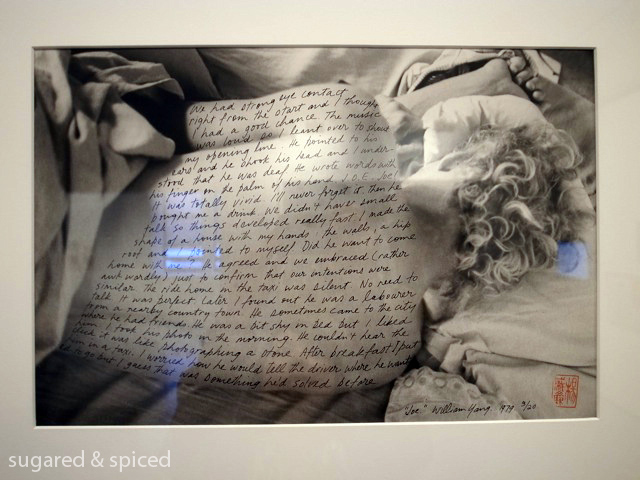 We had strong eye contact
right from the start and I thought
I had a good chance. The music
was loud so I leant over to shout
my opening line. He pointed to his
ears and he shook his head and I under-
stood that he was deaf. He wrote words with
his finger on the palm of his hand. J.O.E. Joe.
It was totally vivid. I'll never forget it. then he
bought me a drink. We didn't have small
talk so things developed really fast. I made the
shape of a house with my hands the walls, a hip
roof and pointed to myself. Did he want to come
home with me? He agreed and we embraced (rather
awkwardly) just to confirm that our intentions were
similar. The ride home in the taxi was silent. No need to
talk. It was perfect. Later I found out he was a labourer
from a nearby country town. He sometimes came to the city
where he had friends. He was a bit shy in bed but I liked
him. I took his photo in the morning. He couldn't hear the
click it was like photographing a stone. After breakfast I put
him in a taxi. I worried how he would tell the driver where he want-
ed to go but I guess that was something he'd solved before.
"Joe" William Yang. 1979. 9/20
sugared & spiced